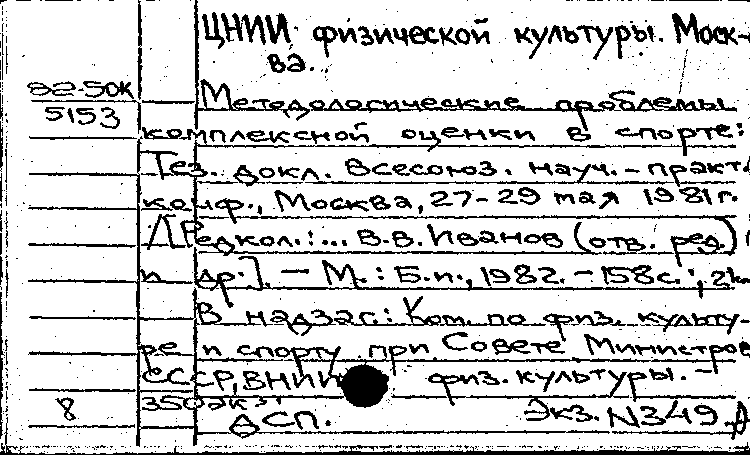 ЦНИИ физической культуры. Моск-
ва.
82-50К
5153
Методологические проблемы
комплексной оценки в спорте:
Тез. докл. Всесоюз. науч.-практ.
конф., Москва, 27-29 мая 1981г.
/[Редкол.:... В.В. Иванов (отв. ред.)
и др.]. - М.: Б.и., 1982. - 158с.;
В надзаг.: Ком. по физ. культу-
ре и спорту при Совете Министров
СССР, ВНИИ физ. культуры. -
350экз.
8
ДСП. Экз. N349